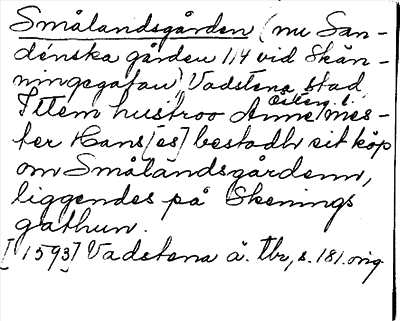 Smålandsgården (nu San-
dénska gården 114 vid Skän-
ningegatan) Vadstena stad
Österg. l.
Ittem hustroo Anne mes-
ter Hans[es] bestodh eit köp
om Smålandsgårdenn,
liggendes på Skenings
gathun.
[1593] Vadstena ä. tb, s. 181. orig.